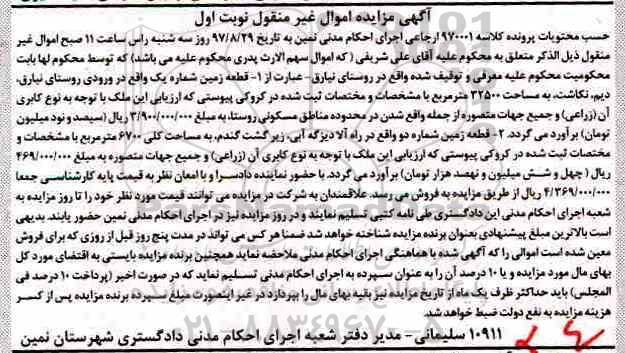 آگهی مزایده اموال غیر منقول نوبت اول
حسب محتویات پرونده کلاسه ۹۷۰۰۰۱ ارجاعی اجرای احکام مدنی نمین به تاریخ ۹۷/۸/۲۹ روز سه شنبه راس ساعت ۱۱ صبح اموال غیر
منقول ذیل الذکر متعلق به محکوم علیه آقای علی شریفی ( که اموال سهم الارث پدری محکوم علیه می باشد) که توسط محکوم لها بابت
محکومیت محکوم علیه معرفی و توقیف شده واقع در روستای نیارق- عبارت از ۱- قطعه زمین شماره یک واقع در ورودی روستای نیارق،
دیم، نکاشت، به مساحت ۳۲۵۰۰ مترمربع با مشخصات و مختصات ثبت شده در کروکی پیوستی که ارزیابی این ملک با توجه به نوع کاربری
آن (زراعی) و جمیع جهات متصوره از جمله واقع شدن در محدوده مناطق مسکونی روستا، به مبلغ ۳/۹۰۰/۰۰۰/۰۰۰ ریال (سیصد و نود میلیون
تومان) برآورد می گردد. ۲- قطعه زمین شماره دو واقع در راه آلا دیزگه آبی، زیر گشت گندم، به مساحت کلی ۶۷۰۰ مترمربع با مشخصات و
مختصات ثبت شده در کروکی پیوستی که ارزیابی این ملک با توجه به نوع کابری آن (زراعی) و جمیع جهات متصوره به مبلغ ۴۶۹/۰۰۰/۰۰۰
ریال ( چهل و شش میلیون و نهصد هزار تومان) برآورد می گردد. با حضور نماینده دادسرا و با امعان نظر به قیمت پایه کارشناسی جمعا
۴/۳۶۹/۰۰۰/۰۰۰ ریال از طریق مزایده به فروش می رسد. علاقمندان به شرکت در مزایده می توانند قیمت مورد نظر خود را تا روز مزایده به
شعبه اجرای احکام مدنی این دادگستری طی نامه کتبی تسلیم نمایند و در روز مزایده نیز در اجرای احکام مدنی نمین حضور یابند. بدیهی
است بالاترین مبلغ پیشنهادی بعنوان برنده مزایده شناخته خواهد شد ضمنا هر کس می تواند در مدت پنج روز قبل از روزی که برای فروش
معین شده است اموالی را که آگهی شده با هماهنگی اجرای احکام مدنی ملاحضه نماید همچنین برنده مزایده بایستی به اقتضای مورد کل
بهای مال مورد مزایده و یا ۱۰ درصد آن را به عنوان سپرده به اجرای احکام مدنی تسلیم نماید که در صورت اخیر (پرداخت ۱۰ درصد فی
المجلس) باید حداکثر ظرف یک ماه از تاریخ مزایده نیز بقیه بهای مال را بپردازد در غیر اینصورت مبلغ سپرده برنده مزایده پس از کسر
هزینه مزایده به نفع دولت ضبط خواهد شد.
۱۰۹۱۱ سلیمانی- مدیر دفتر شعبه اجرای احکام مدنی دادگستری شهرستان نمین